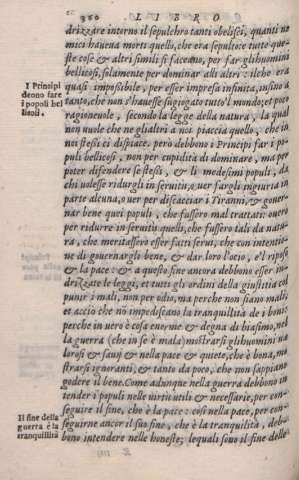 350 LIBRO
drizzare intorno il sepulchro tanti obelisci, quanti ne
mici haueua morti quello, che era sepolto: e tutte que-
ste cose & altri simili si faceano, per far gli huomini
bellicosi, solamente per dominar alli altri: ilche era
I Principi
deono fare
i popoli bel
licosi.
quasi impossibile, per esser impresa infinita, insino a
tanto, che non s'hauesse sugiogato tutto'l mondo; et poco
ragioneuole, secondo la legge della natura, la qual
non vuole che ne gli altri a noi piaccia quello, che in
noi stessi ci dispiace. però debbono i Principi far i po-
puli bellicosi, non per cupidità di dominare, ma per
poter difendere se stessi, & li medesimi populi, da
chi volesse ridurgli in seruitù, o uer fargli ingiuria in
parte alcuna, o uer per discacciar i Tiranni, & gouer-
nar bene quei populi, che fussero mal trattati: ouero
per ridurre in seruitù quelli, che fussero tali da natu-
ra, che meritassero esser fatti serui, con intentio-
ne di gouernargli bene, & dar loro l'ocio, e'l riposo
& la pace: & a questo fine ancora debbono esser in-
drizzate le leggi, et tutti gli ordini della giustitia col
punir i mali, non per odio, ma perche non siano mali,
et acciò che nò impediscano la tranquillità de i boni:
perche in vero è cosa enorme & degna di biasimo, nel
la guerra (che in se è mala) mostrarsi gli huomini va
lorosi & sauij & nella pace & quiete, che è bona, mo
strarsi ignoranti, & tanto da poco, che non sappiano
godere il bene. Come adunque nella guerra debbono in
tender i populi nelle virtù utili & necessarie, per con-
seguire il fine, che è la pace: così nella pace, per con-
Il fine della
guerra è la
tranquillità
seguirne ancor il suo fine, che è la tranquilità, deb-
bono intendere nelle honeste; lequali sono il fine delle